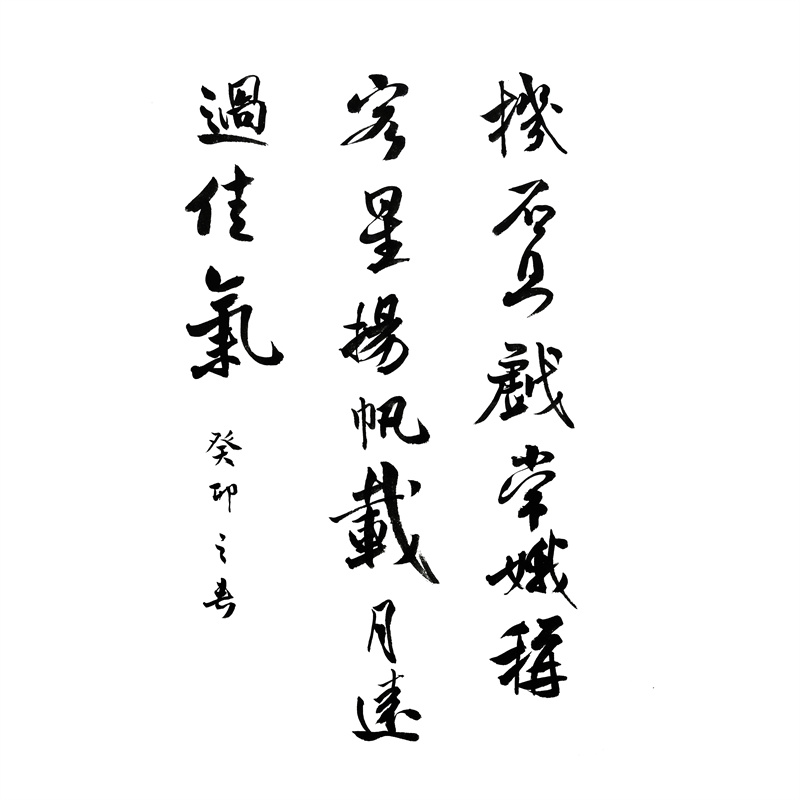 機石且戲常娥稱
客星揚帆載月遠
過佳氣
癸卯之春